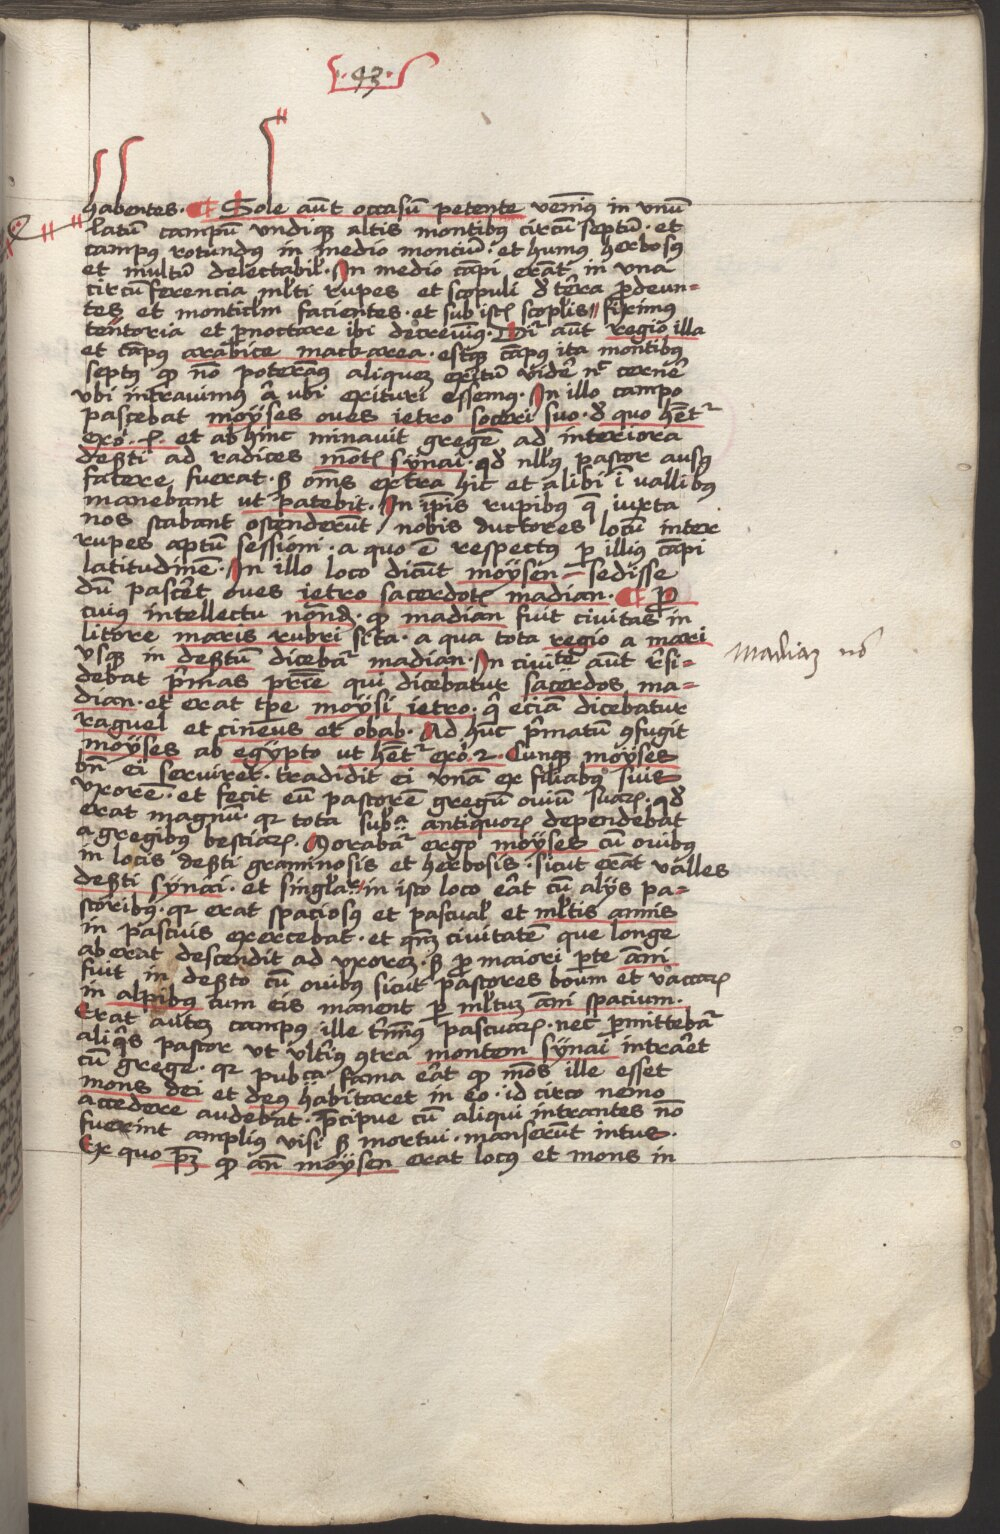 .43.
habentes. Sole aūt occasū petente venīꝰ in vnū
latū campū vndiqꝫ altis montibꝰ circū septū. et
campꝰ rotundꝰ in medio montiū. et humꝰ herbosꝰ
et multū delectabil'. In medio cāpi erāt in vna
circūferencia ml'ti rupes et scopuli d' t'ra ꝓdeun-
tes et monticl'm facientes. et sub istꝭ scopl'is fiximus
tentoria et ꝑnoctare ibi decrevimꝰ. Dr̄ aūt regio illa
et cāpꝰ arabice mackarea. estqꝫ cāpꝰ ita montibꝰ
septꝰ ꝙ nō poteramꝰ aliquem exitū vidē nꝭ cernē
vbi intravimꝰ aut vbi exituri essemꝰ. In illo campo
pascebat moyses oves ietro soceri suo. d' quo hēt̄
exō. et ab hinc minavit gregē ad interiora
dest'i ad radices mōtꝭ synai. qd' nll'ꝰ pastor ausꝰ
facere fuerat. sꝫ om̄s extra hic et alibi ī vallibꝰ
manebant ut patebit. In ip̄is rupibꝰ q̄ iuxta
nos stabant ostenderūt nobis ductores locū inter
rupes aptū sessioni. a quo ē respectꝰ ꝑ illiꝰ cāpi
latitudinē. In illo loco dicūt moysen - sedisse
dū pascēt oves ietro sacerdotꝭ madian. ꝓ
cuius intellectu nonnd'. ꝙ madian fuit civitas in
litore maris rubri sita. a qua tota regio a mari
vsqꝫ in dest'tū dicebat̄ madian. In civite aūt r'si-
debat p'mas pr'ie qui dicebatur sacerdos ma-
dian. et erat tp̄e moysi ietro. q' eciam dicebatur
raguel et cineus et obab. Ad hūc p'matū ꝯfugit
moyses ab egypto ut hēt̄ exō. 2. Cunqꝫ moyses
bn̄ ei serviret. tradidit ei vnā ex filiabꝰ suis
vxorē. et fecit eū pastorē gregū oviū suaꝝ. qd'
erat magnū. qr tota sub'a antiquoꝝ dependebat
a gregibꝰ bestiaꝝ. Morabat̄ ergo moyses cū ovibꝰ
in locis dest'i graminosis et herbosis. sicut erāt valles
dest'i synai. et singl'ar' in isto loco erāt cū alijs pa-
storibꝰ. qr erat spaciosꝰ et pascual' et ml'tis annis
in pascuis exercebat. et qn̄qꝫ civitatē que longe
aberat descendit ad vxorem. sꝫ ꝓ maiori ꝑte ām
fuit in dest'to cū ovibꝰ sicut pastores boum et vaccaꝝ
in alpibꝰ cum eis manent ꝑ ml'tum ām spacium.
Erat autem campꝰ ille t'minꝰ pascuaꝝ. nec ꝑmittebat̄
aliq's pastor vt vlt'iꝰ ꝯtra montem synai intrāet
cū grege. qr publica fama erāt ꝙ mōs ille esset
mons dei et deꝰ habitaret in eo. id circo nemo
accedere audebat. p̄cipue cū aliqui intrantes nō
fuerint ampliꝰ visi sꝫ mortui. manserūt intus.
Ex quo pꝫ ꝙ an̄ moysen erat locꝰ et mons in
Madiam no